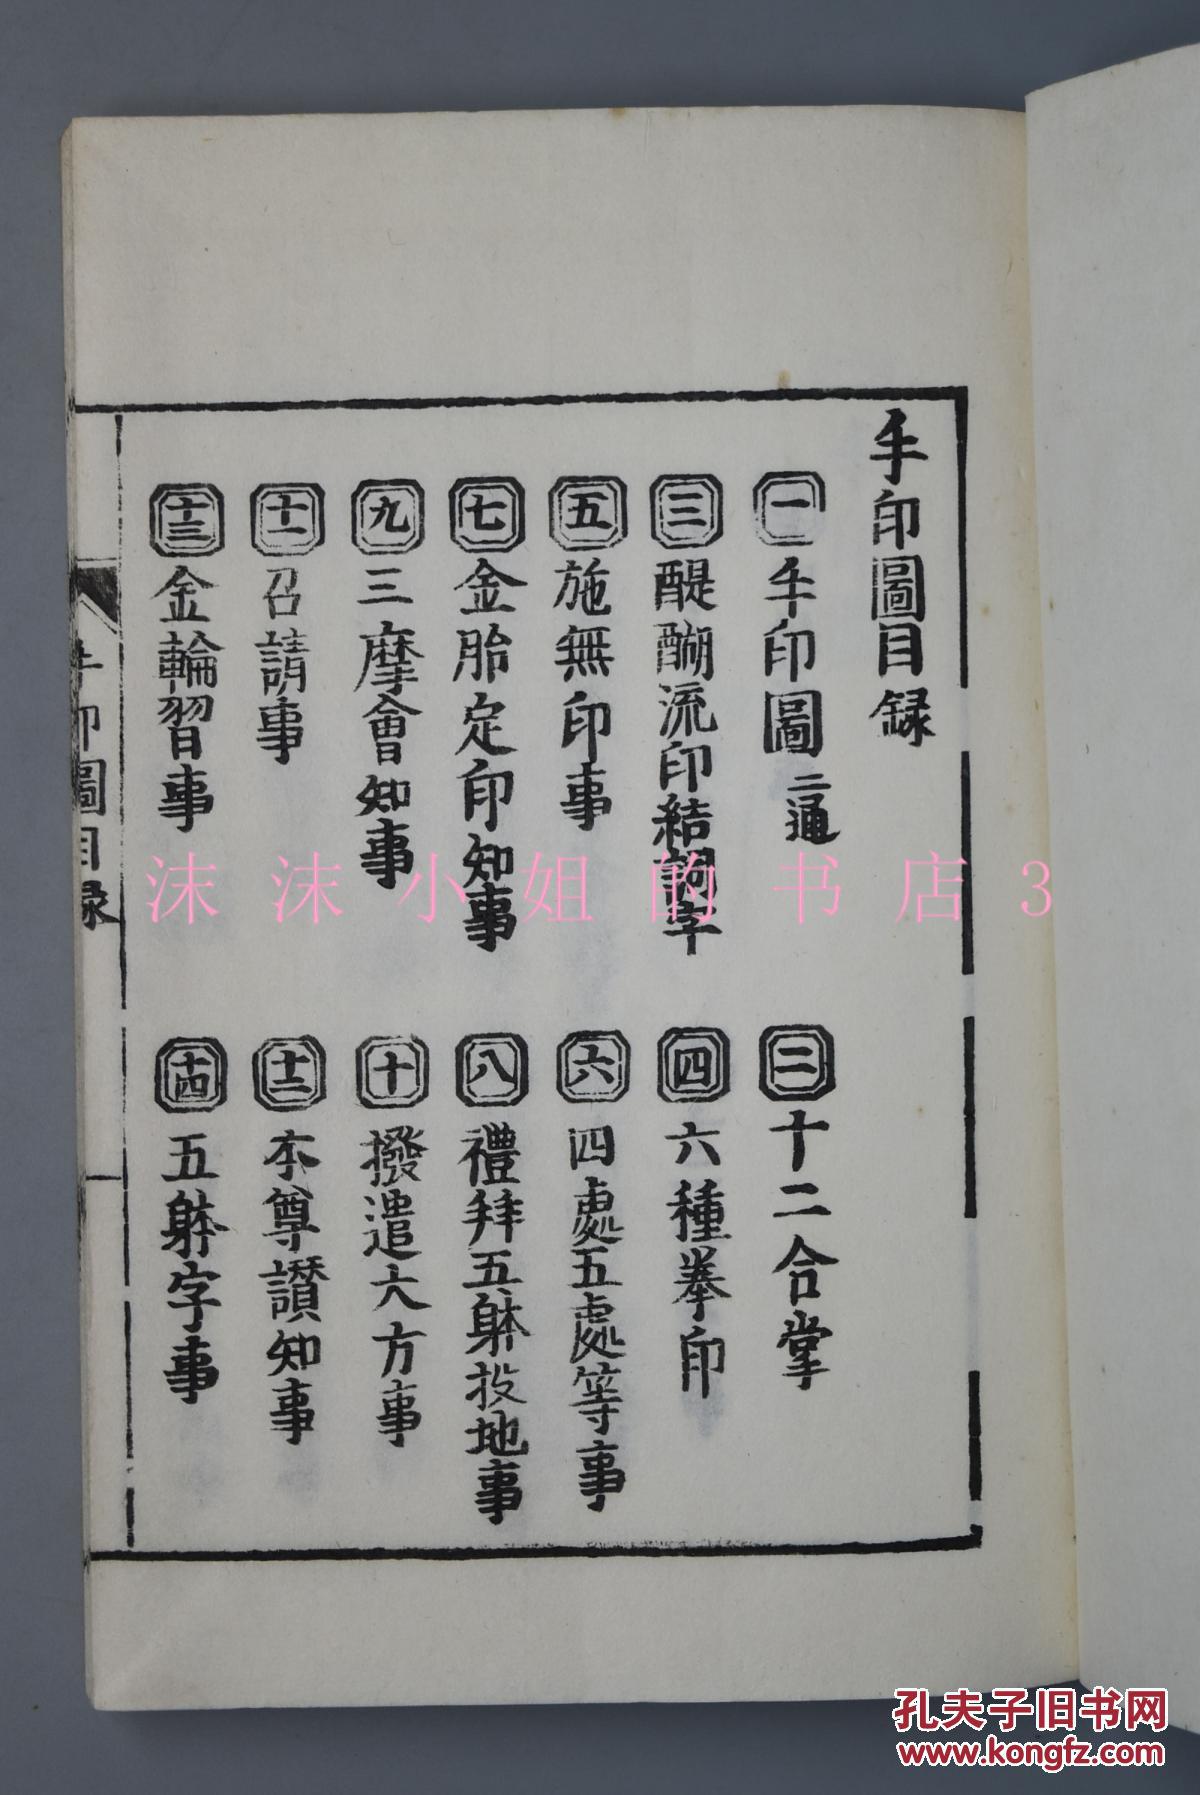 手印圖目録
一 手印圖 二通
二 十二合掌
三 醍醐流印結詞字
四 六種拳印
五 施無印事
六 四處五處等事
七 金胎定印知事
八 禮拜五躰投地事
九 三摩會知事
十 撥遣六方事
十一 召請事
十二 本尊讃知事
十三 金輪習事
十四 五躰字事
手印圖目録
沫沫小姐的书店3
孔夫子旧书网
www.kongfz.com